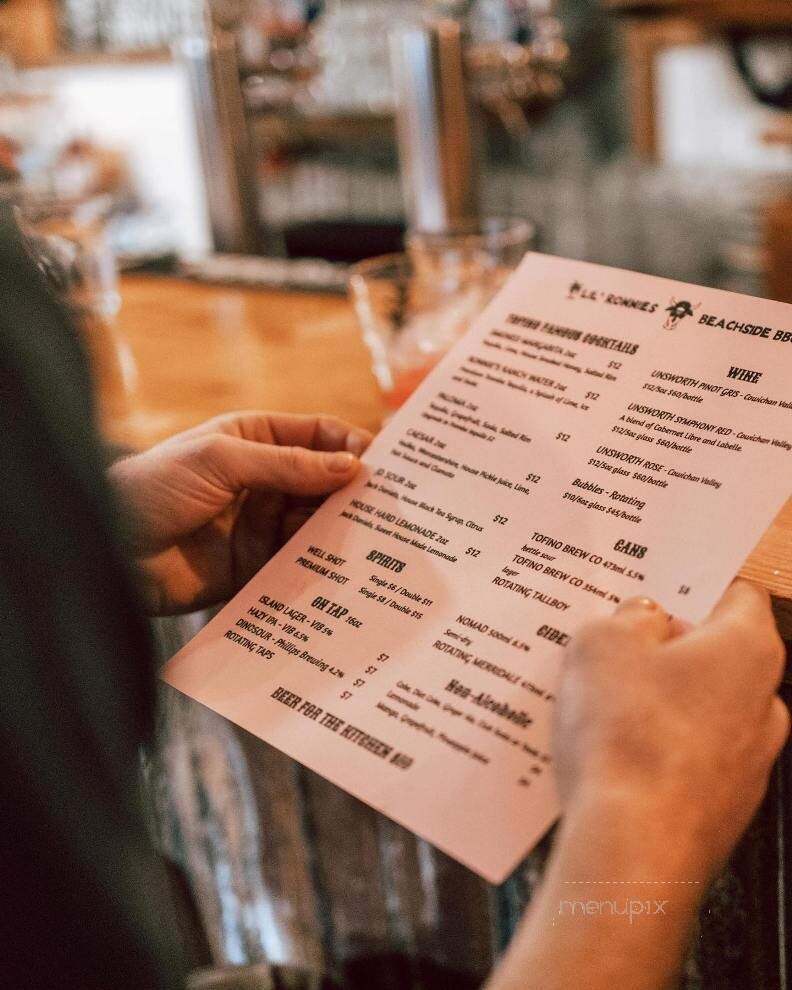 LIL' RONNIES BEACHSIDE BBQ
TOFINO FAMOUS COCKTAILS
SMOKED MARGARITA 2oz $12
Tequila, Lime, House Smoked Honey, Salted Rim
RONNIE'S RANCH WATER 2oz $12
Tequila, a Splash of Lime, Ice
PALOMA 2oz $12
Tequila, Grapefruit, Soda, Salted Rim
CAESAR 2oz $12
Vodka, Worcestershire, House Pickle Juice, Lime,
Hot Sauce and Clamato
JD SOUR 2oz $12
Jack Daniels, House Black Tea Syrup, Citrus
HOUSE HARD LEMONADE 2oz $12
Jack Daniels, Sweet House Made Lemonade
SPIRITS
WELL SHOT Single $6 / Double $11
PREMIUM SHOT Single $8 / Double $15
ON TAP 16oz
ISLAND LAGER - VIB 5% $7
HAZY IPA - VIB 6.5% $7
DINOSOUR - Phillips Brewing 4.2% $7
ROTATING TAPS $7
BEER FOR THE KITCHEN
WINE
UNSWORTH PINOT GRIS - Cowichan Valley
$12/5oz $60/bottle
UNSWORTH SYMPHONY RED - Cowichan Valley
A blend of Cabernet Libre and Labelle
$12/5oz glass $60/bottle
UNSWORTH ROSE - Cowichan Valley
$12/5oz glass $60/bottle
Bubbles - Rotating
$10/6oz glass $45/bottle
CANS
TOFINO BREW CO 473ml 5.5% $8
kettle sour
TOFINO BREW CO 354ml 5%
lager
ROTATING TALLBOY
CIDER
NOMAD 500ml 6.5%
Semi-dry
ROTATING MERRIDALE 473ml
Non-Alcoholic
Coke, Diet Coke, Ginger Ale, Club Soda or Tonic
Lemonade
Mango, Grapefruit, Pineapple Juice
menupix